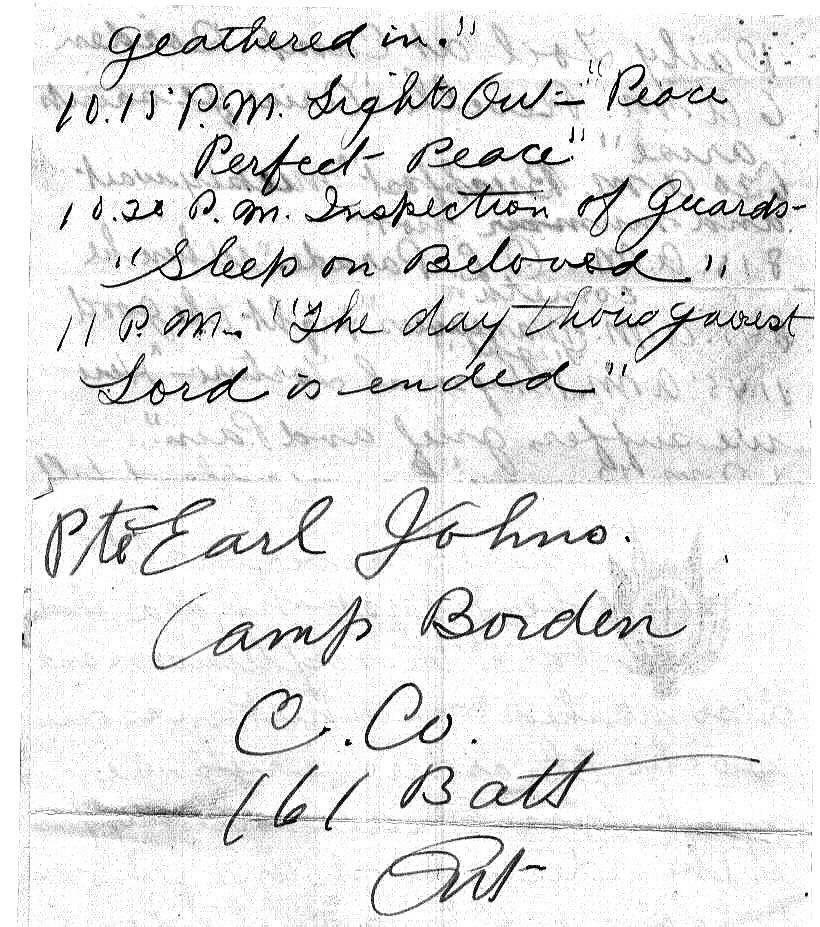 Geathered in."
10.15 P.M. Lights Out – "Peace
Perfect Peace"
10.20 P.M. Inspection of Guards-
"Sleep on Beloved"
11 P.M. "The day thou gavest
Lord is ended"
Pte Earl Johns.
Camp Borden
C. Co.
161 Batt
Ont